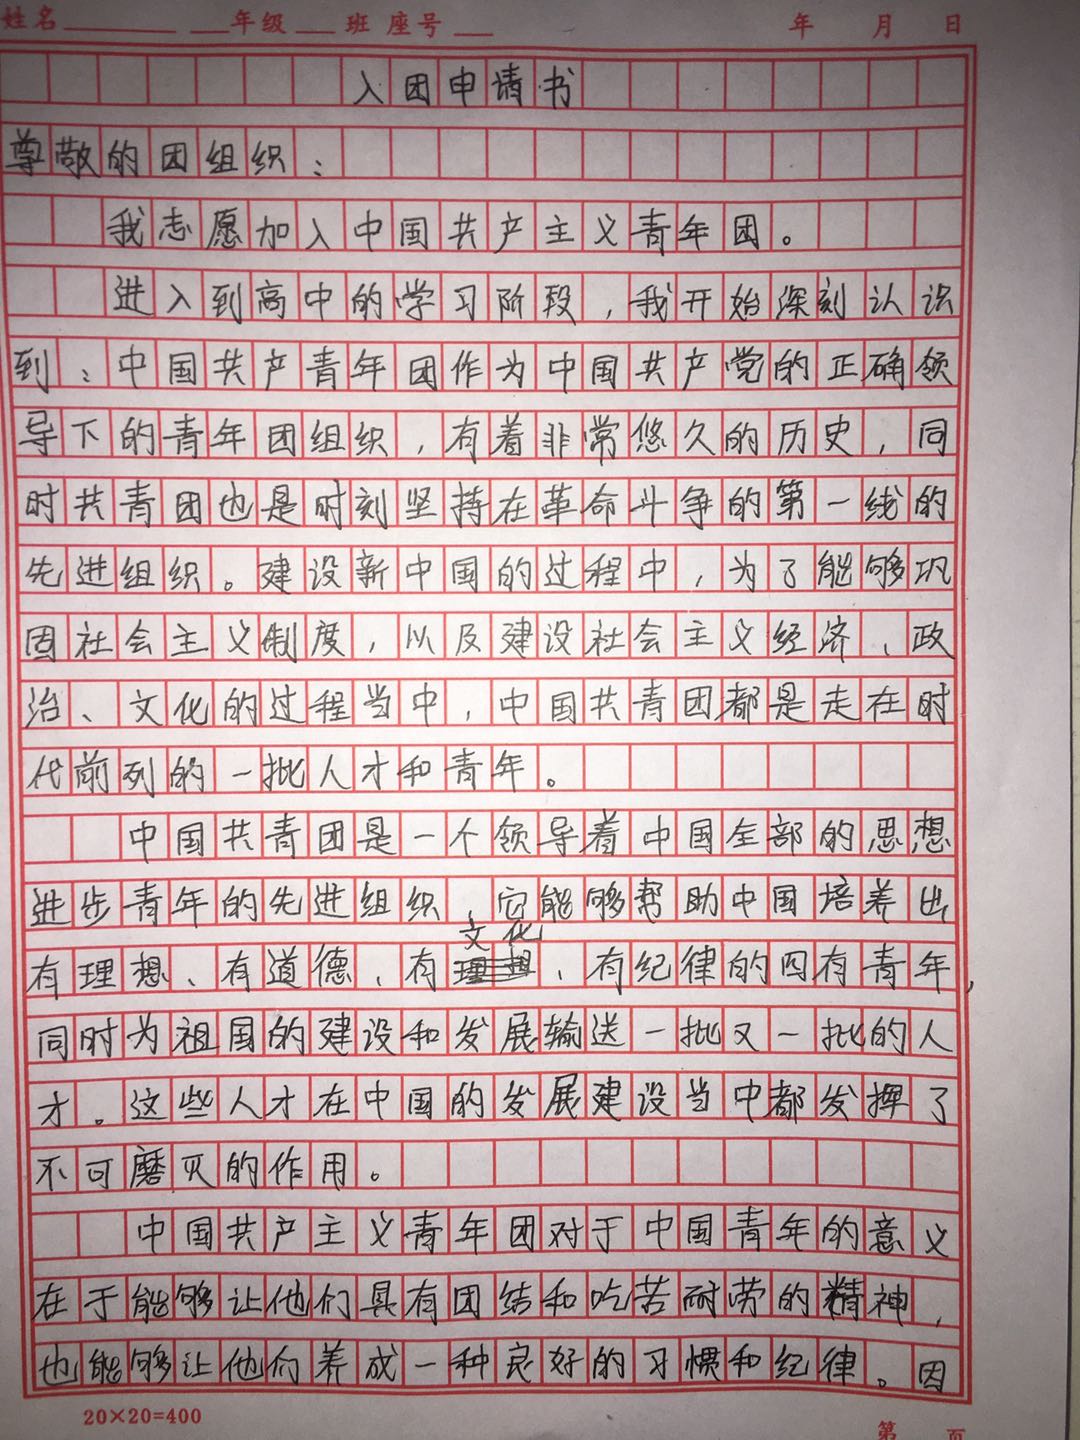 姓名________ ___年级___班 座号___ 年 月 日
入团申请书
尊敬的团组织：
我志愿加入中国共产主义青年团。
进入到高中的学习阶段，我开始深刻认识
到：中国共产青年团作为中国共产党的正确领
导下的青年团组织，有着非常悠久的历史，同
时共青团也是时刻坚持在革命斗争的第一线的
先进组织。建设新中国的过程中，为了能够巩
固社会主义制度，以及建设社会主义经济、政
治、文化的过程当中，中国共青团都是走在时
代前列的一批人才和青年。
中国共青团是一个领导着中国全部的思想
进步青年的先进组织，它能够帮助中国培养出
有理想、有道德、有文化、有纪律的四有青年，
同时为祖国的建设和发展输送一批又一批的人
才。这些人才在中国的发展建设当中都发挥了
不可磨灭的作用。
中国共产主义青年团对于中国青年的意义
在于能够让他们具有团结和吃苦耐劳的精神，
也能够让他们养成一种良好的习惯和纪律。因
20×20=400
第 页